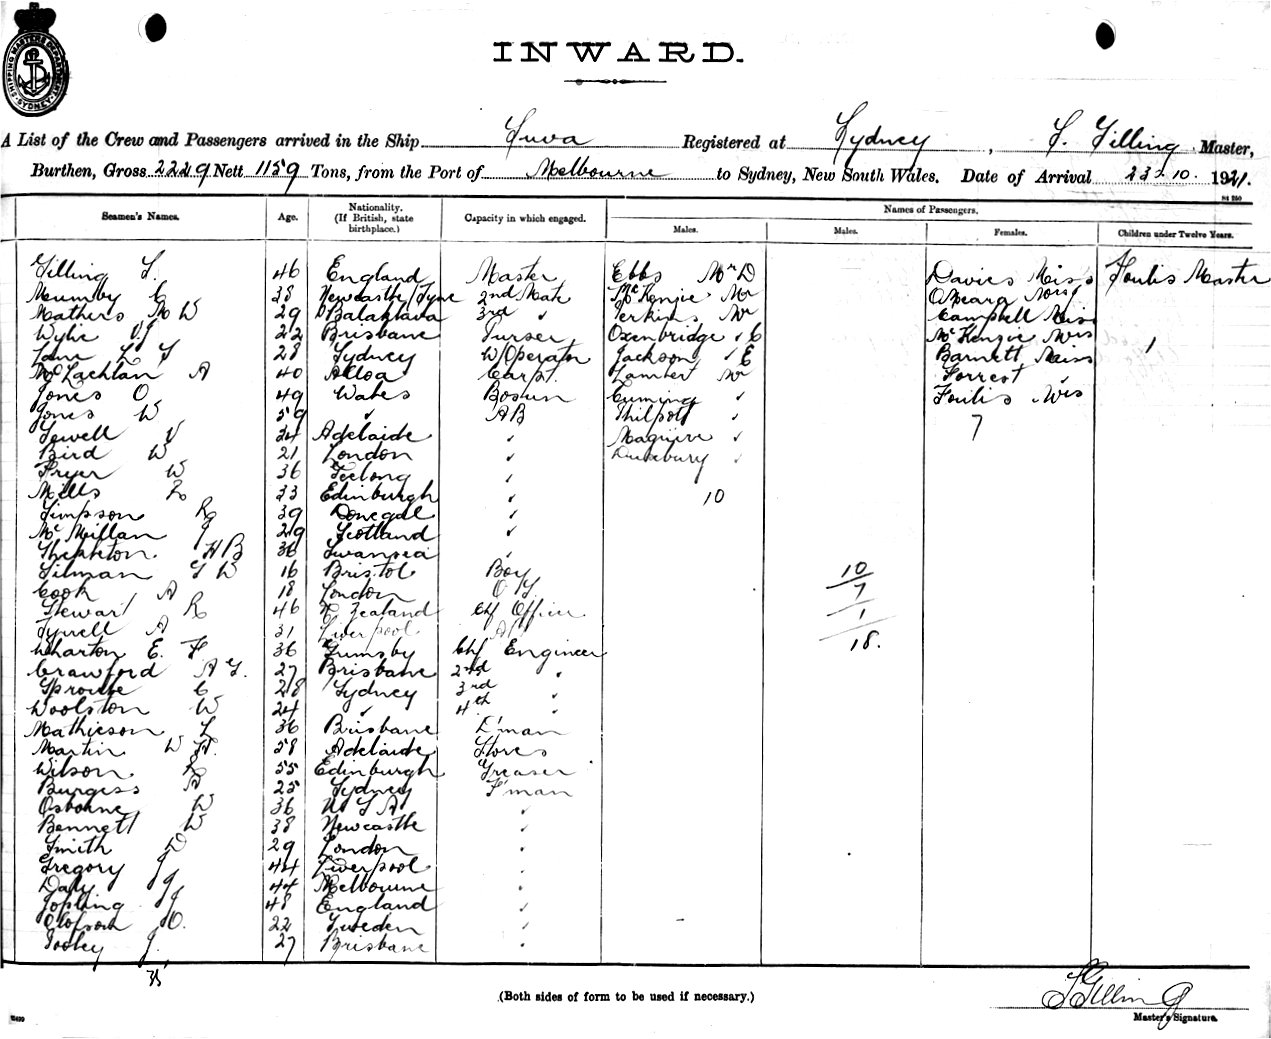 SHIPPING MASTERS DEPARTMENT SYDNEY
INWARD.
A List of the Crew and Passengers arrived in the Ship Suva Registered at Sydney, S. Gilling Master,
Burthen, Gross 2229 Nett 1159 Tons, from the Port of Melbourne to Sydney, New South Wales. Date of Arrival 23-10. 1921.
Seamen's Names. Age. Nationality. (If British, state birthplace.) Capacity in which engaged. Names of Passengers.
Males. Males. Females. Children under Twelve Years.
Gilling S. 46 England Master Ebbs Mr D Davies Miss Foulis Master
Mumby C 38 Newcastle/Tyne 2nd Mate McKenzie Mr O'Meara Miss
Mathers M W 29 Balaklava 3rd " Perkins Mr Campbell Miss
Wylie V J 22 Brisbane Purser Oxenbridge " C McKenzie Mrs 1
Lane L S 28 Sydney W/Operator Jackson " E Barnett Miss
McLachlan A 40 Alloa Carpt. Lambert Mr Forrest "
Jones O 49 Wales Bosun Cuming " Foulis Mrs
Jones W 59 " AB Philpott " 7
Sewell V 24 Adelaide " Maguire "
Bird W 21 London " Duxbury "
Fryer W 36 Geelong "
Mills 33 Edinburgh " 10
Simpson R 39 Donegal "
McMillan J 29 Scotland "
Shepheton H B 36 Swansea "
Silman S W 16 Bristol Boy 10
Cook A 18 London O S 7
Stewart R 46 N Zealand Chf Officer 1
Tyrrell A 31 Liverpool A 18.
Wharton E. F 36 Grimsby Chf Engineer
Crawford A G. 27 Brisbane 2nd "
Sproule C 28 Sydney 3rd "
Woolston W 24 " 4th "
Mathieson L 36 Brisbane D'man
Martin W H. 58 Adelaide Stores
Wilson R 55 Edinburgh Greaser
Burgess A 25 Sydney F'man
Osborne W 36 U S A "
Bennett W 38 Newcastle "
Smith D 29 London "
Gregory J 44 Liverpool "
Daly J 44 Melbourne "
Topling J 48 England "
Olofson O. 22 Sweden "
Tooley J. 27 Brisbane "
35
(Both sides of form to be used if necessary.)
S Gilling
Master's Signature.